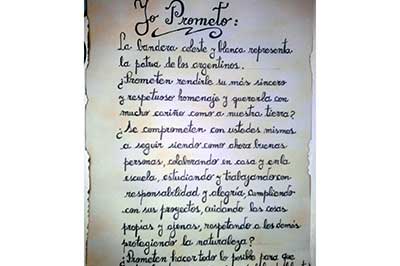 Yo Prometo:
La bandera celeste y blanca representa
la patria de los argentinos.
¿Prometen rendirle su más sincero
y respetuoso homenaje y quererla con
mucho cariño como a nuestra tierra?
¿Se comprometen con ustedes mismos
a seguir siendo como ahora buenas
personas, colaborando en casa y en la
escuela, estudiando y trabajando con
responsabilidad y alegría, cumpliendo
con sus proyectos, cuidando las cosas
propias y ajenas, respetando a los demás
protegiendo la naturaleza?
¿Prometen hacer todo lo posible para que